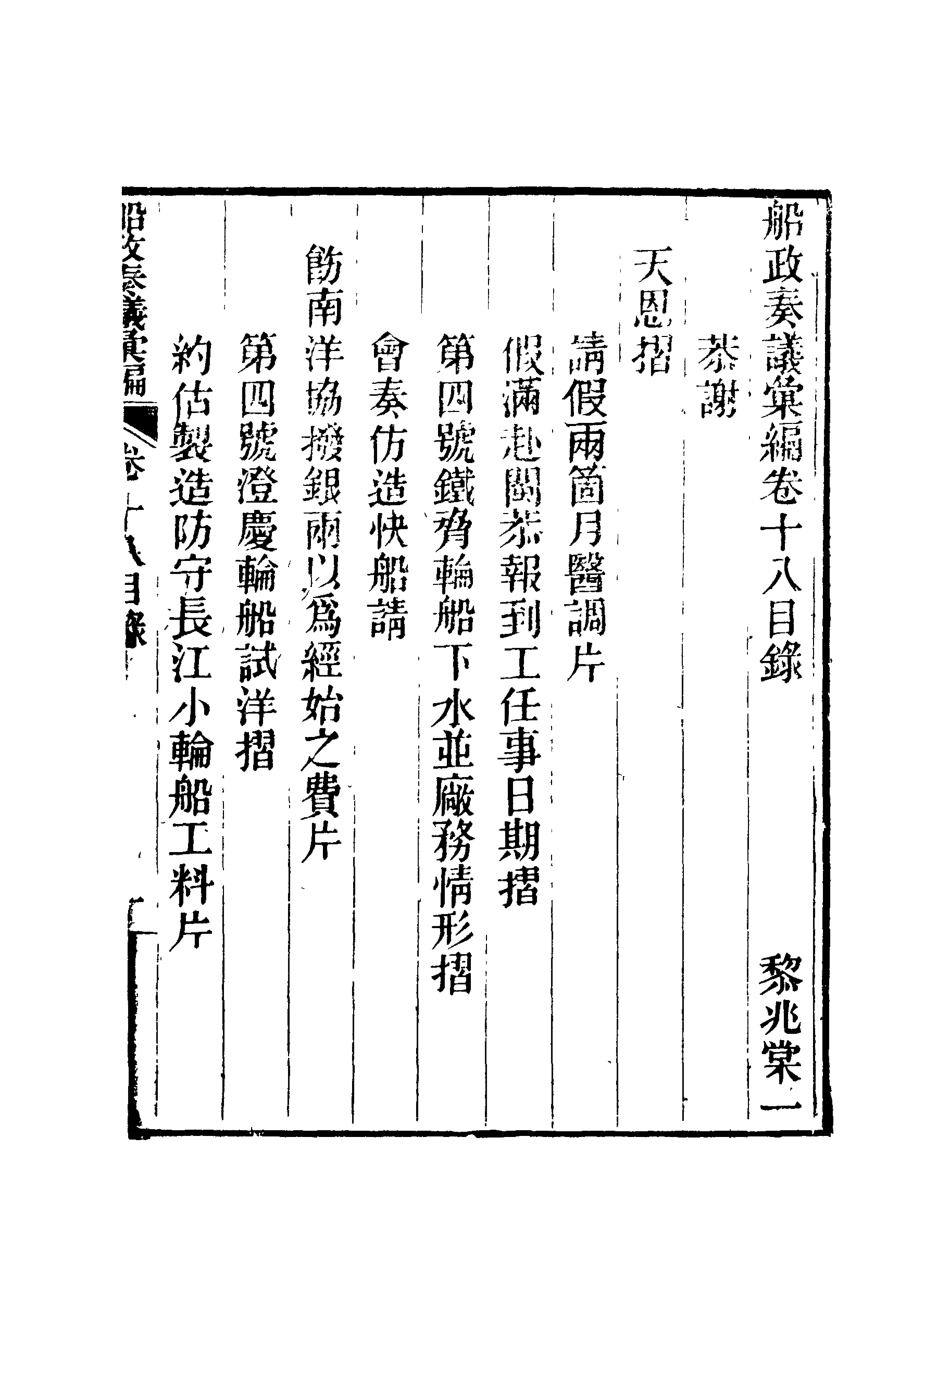 船政奏議彙編卷十八目錄 黎兆棠一
恭謝
天恩摺
請假兩箇月醫調片
假滿赴閩恭報到工任事日期摺
第四號鐵脅輪船下水並廠務情形摺
會奏仿造快船請
飭南洋協撥銀兩以爲經始之費片
第四號澄慶輪船試洋摺
約估製造防守長江小輪船工料片
船政奏議彙編 卷十八目錄 一